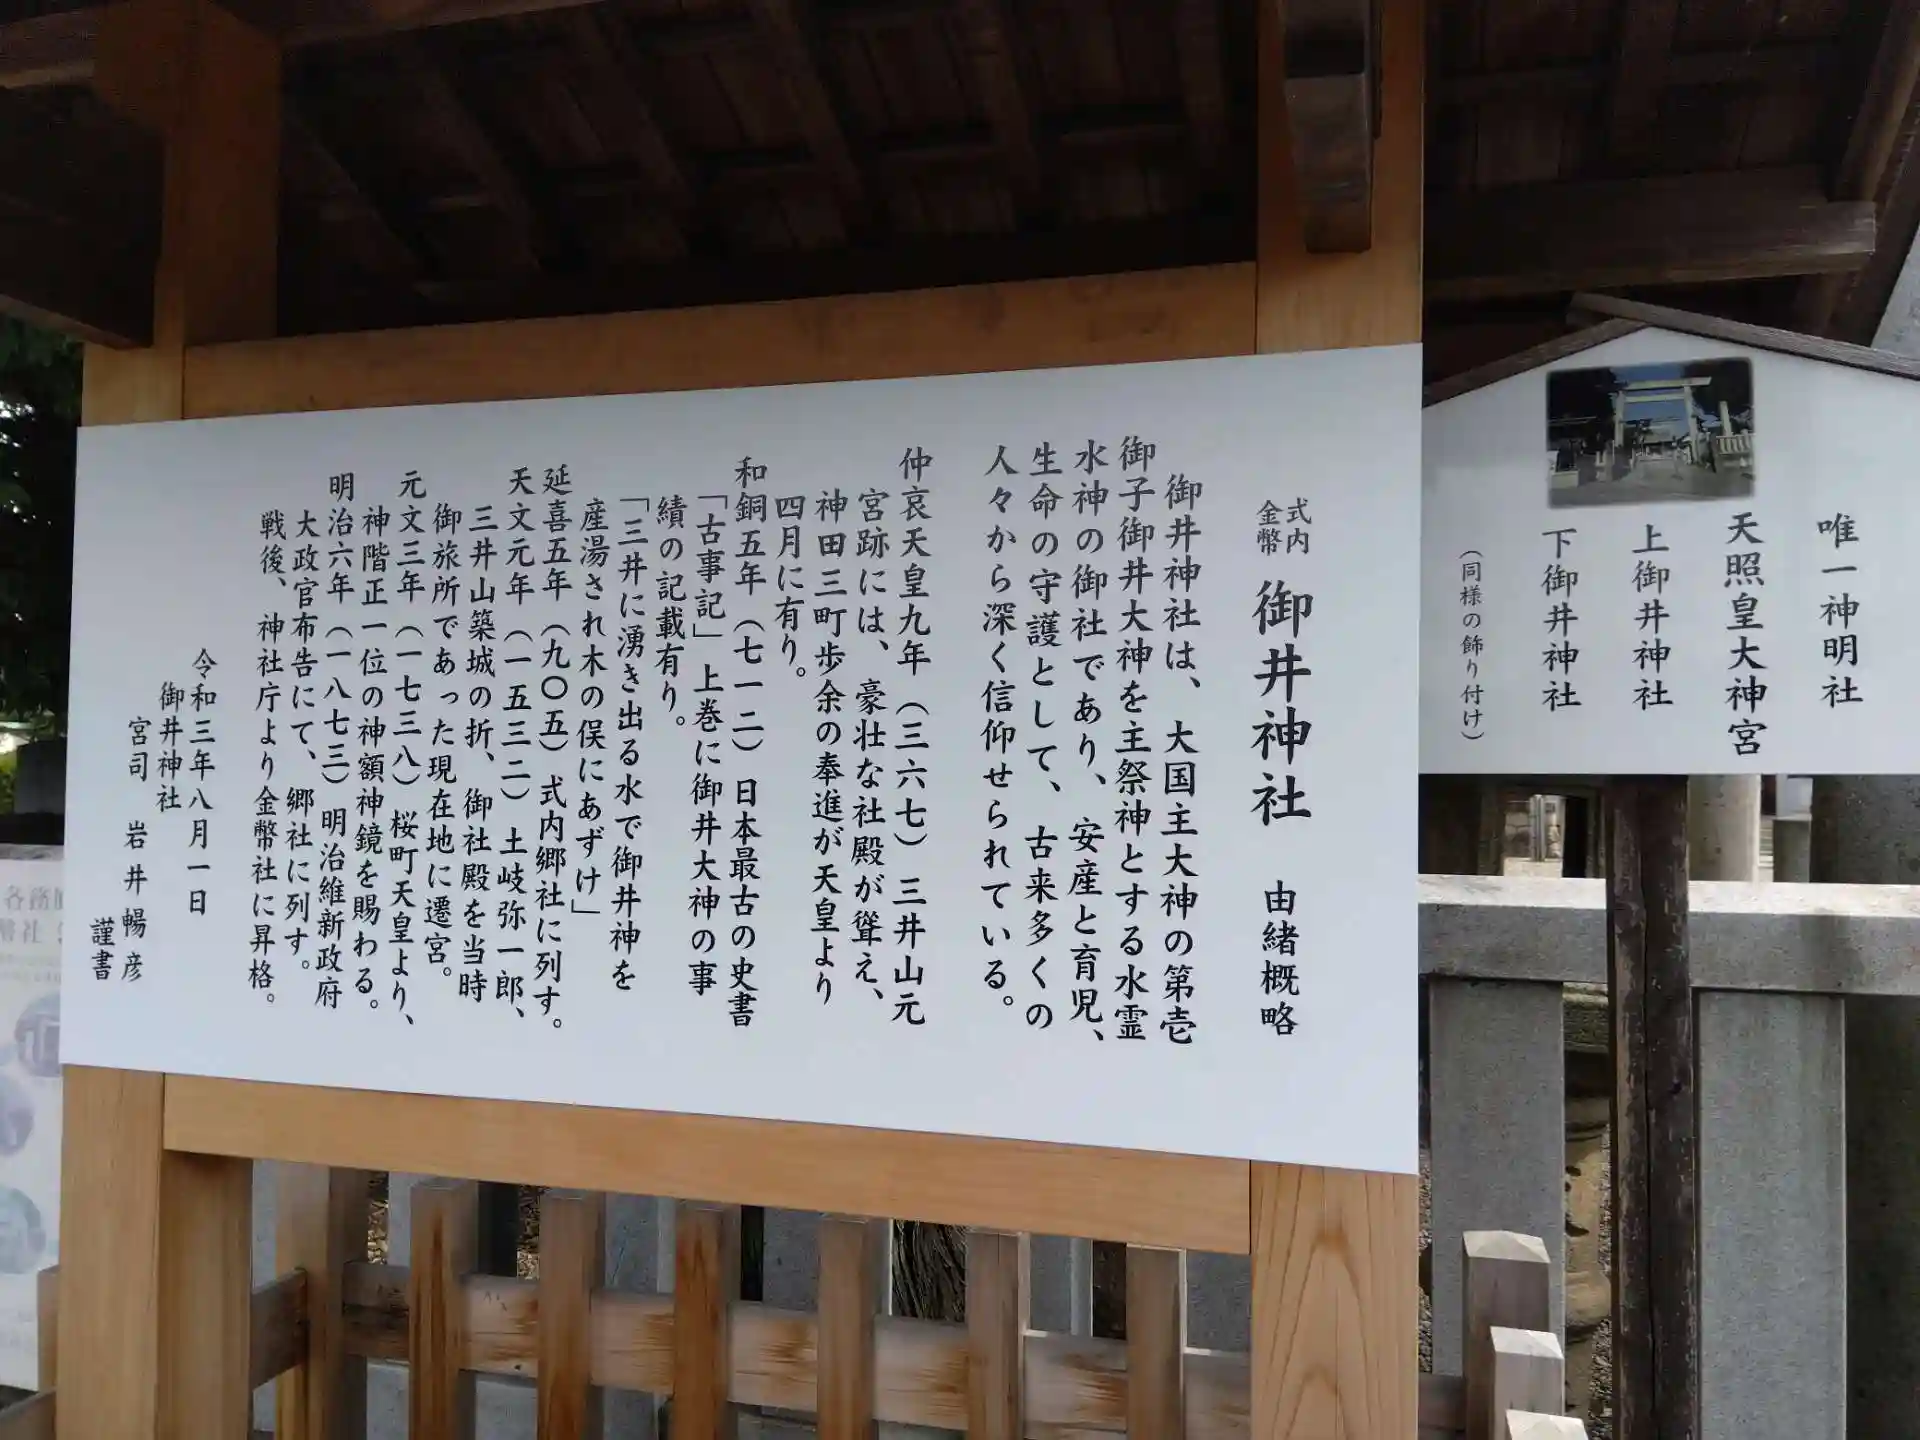 唯一神明社
天照皇大神宮
上御井神社
下御井神社
（同様の飾り付け）
式内
金幣
御井神社 由緒概略
御井神社は、大国主大神の第壱
御子御井大神を主祭神とする水霊
水神の御社であり、安産と育児、
生命の守護として、古来多くの
人々から深く信仰せられている。
仲哀天皇九年（三六七）三井山元
宮跡には、豪壮な社殿が聳え、
神田三町歩余の奉進が天皇より
四月に有り。
和銅五年（七一二）日本最古の史書
「古事記」上巻に御井大神の事
績の記載有り。
「三井に湧き出る水で御井神を
産湯され木の俣にあずけ」
延喜五年（九〇五）式内郷社に列す。
天文元年（一五三二）土岐弥一郎、
三井山築城の折、御社殿を当時
御旅所であった現在地に遷宮。
元文三年（一七三八）桜町天皇より、
神階正一位の神額神鏡を賜わる。
明治六年（一八七三）明治維新政府
大政官布告にて、郷社に列す。
戦後、神社庁より金幣社に昇格。
令和三年八月一日
御井神社
宮司 岩井暢彦
謹書